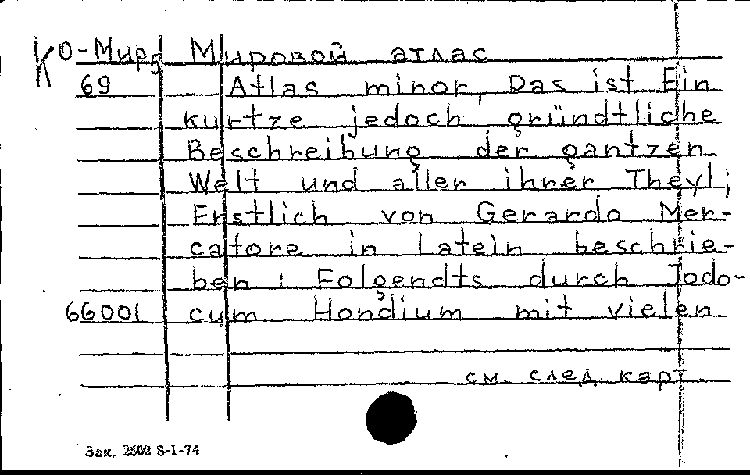 КО-Мир5 Мировой атлас
69 Atlas minor, Das ist Ein
kurtze jedoch gründtliche
Beschreibung der gantzen
Welt und aller ihrer Theyl;
Erstlich von Gerardo Mer-
catore in Latein beschrie-
ben: Folgendts durch Jodo-
66001 cum Hondium mit vielen
см. след. карт.
Зак. 2602 8-I-74